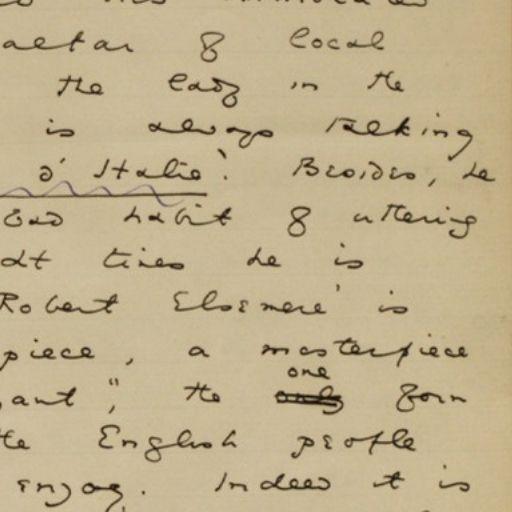 altar of local
the lady in the
is always talking
d'Italie'. Besides, he
bad habit of uttering
At times he is
Robert Elsmere' is
piece, a masterpiece
one
ant", the only form
the English people
enjoy. Indeed it is